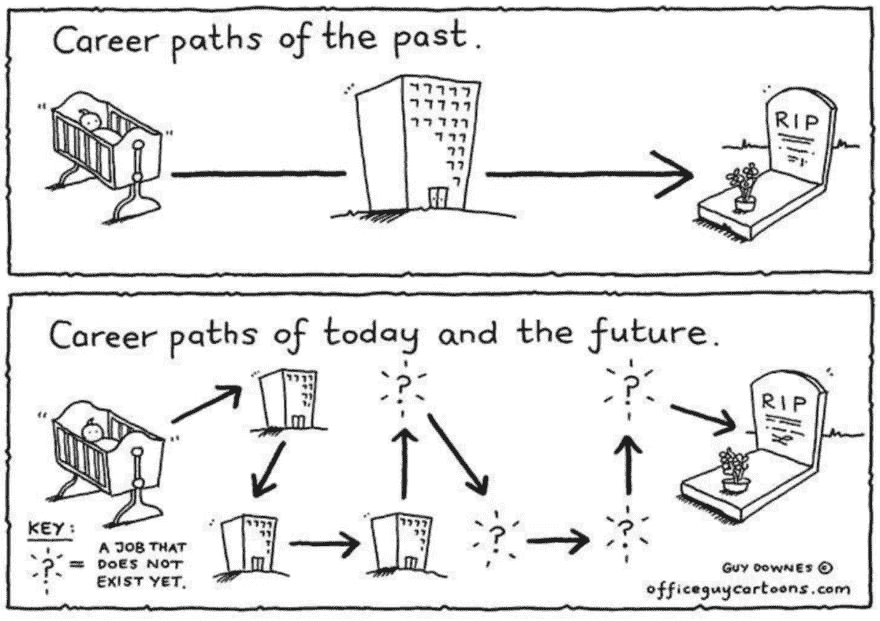 Career paths of the past.
RIP
Career paths of today and the future.
?
?
RIP
?
?
KEY:
? = A JOB THAT
DOES NOT
EXIST YET.
GUY DOWNES ©
officeguycartoons.com